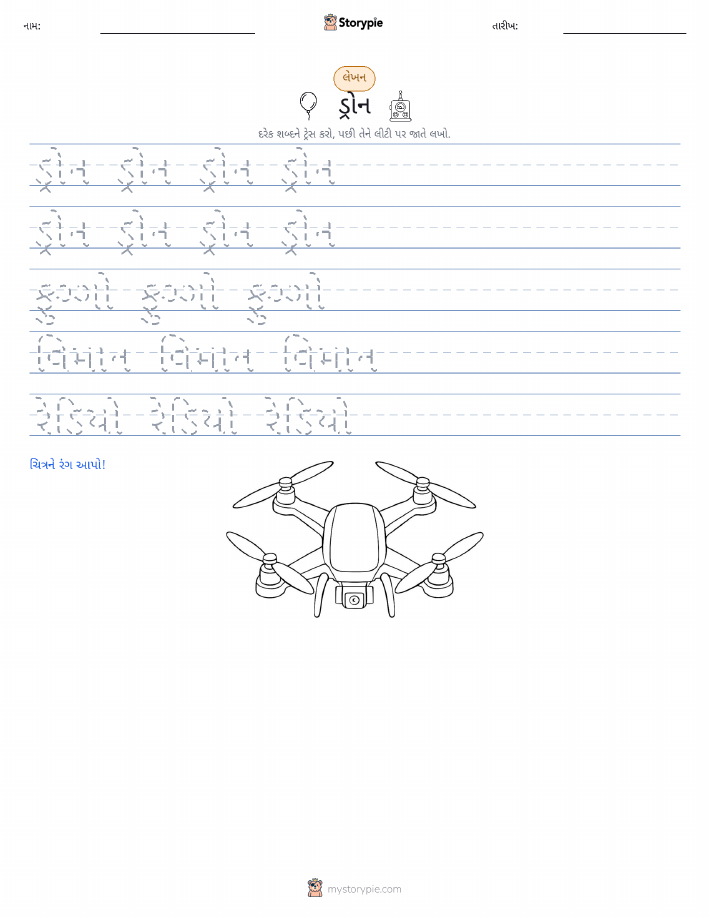 નામ: તારીખ:
Storypie
લેખન
ડ્રોન
દરેક શબ્દને ટ્રેસ કરો, પછી તેને લીટી પર જાતે લખો.
ડ્રોન ડ્રોન ડ્રોન ડ્રોન
ડ્રોન ડ્રોન ડ્રોન ડ્રોન
ફુગ્ગો ફુગ્ગો ફુગ્ગો
વિમાન વિમાન વિમાન
રેડિયો રેડિયો રેડિયો
ચિત્રને રંગ આપો!
mystorypie.com